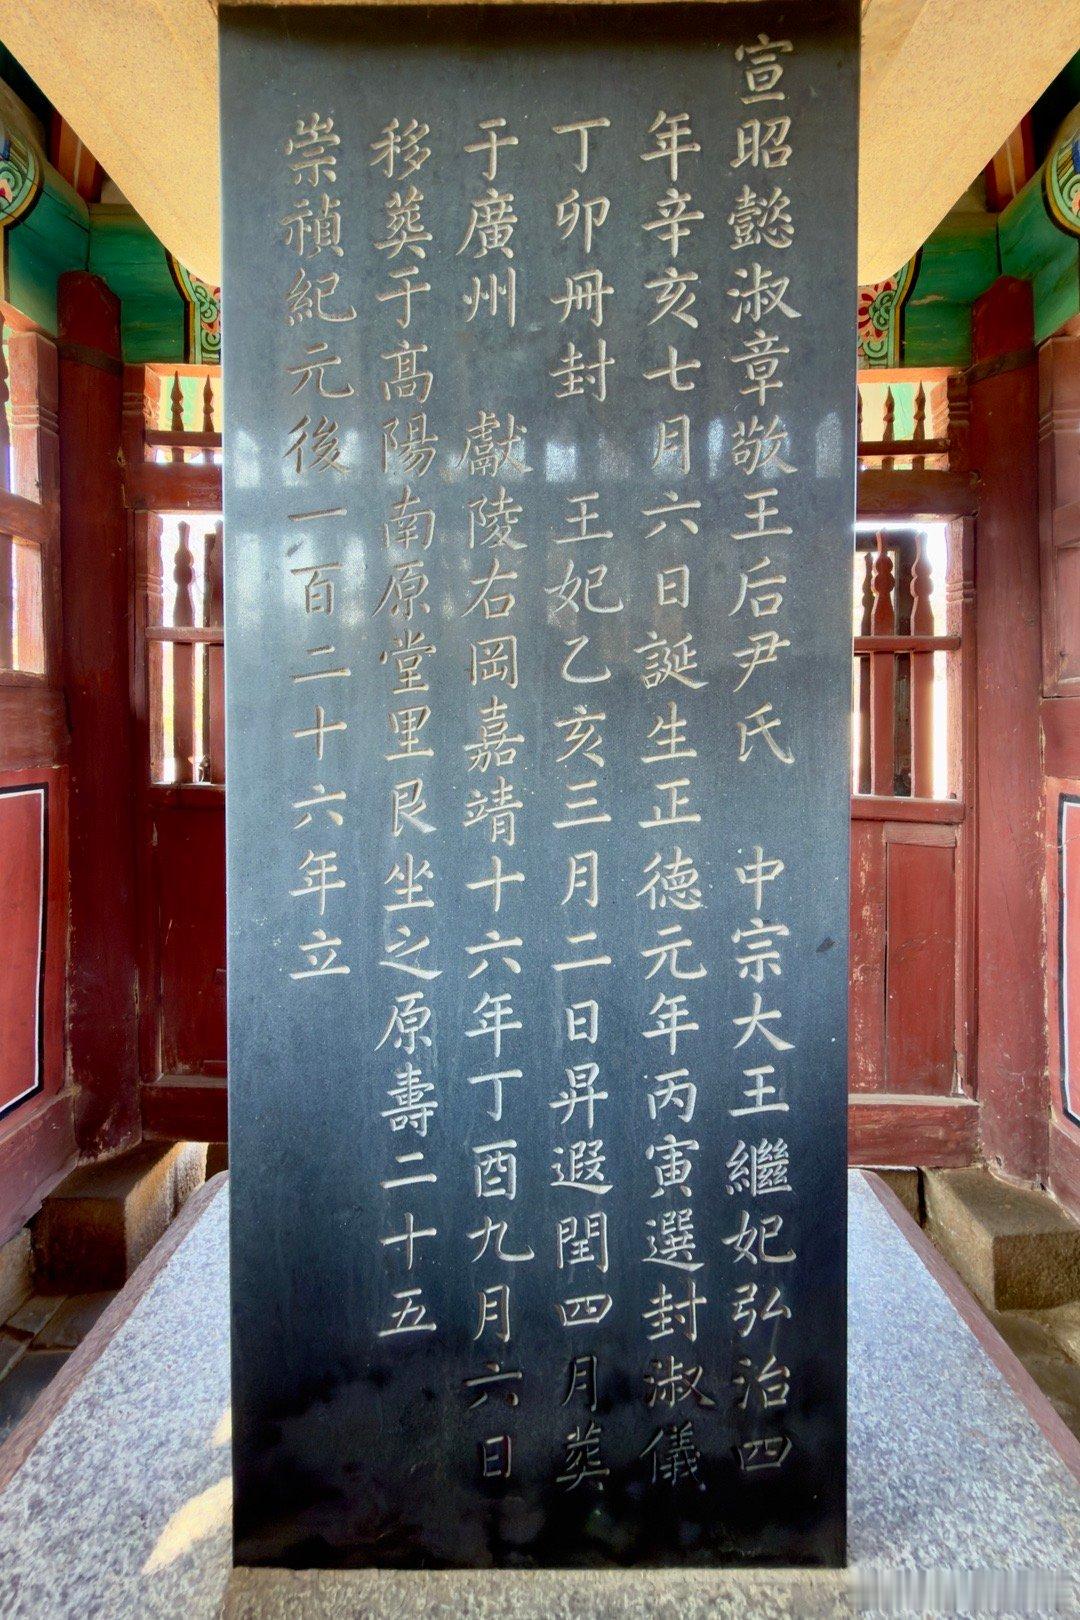 宣昭懿淑章敬王后尹氏 中宗大王繼妃弘治四
年辛亥七月六日誕生正德元年丙寅選封淑儀
丁卯冊封 王妃乙亥三月二日昇遐閏四月葬
于廣州 獻陵右岡嘉靖十六年丁酉九月六日
移葬于高陽南原堂里艮坐之原壽二十五
崇禎紀元後一百二十六年立